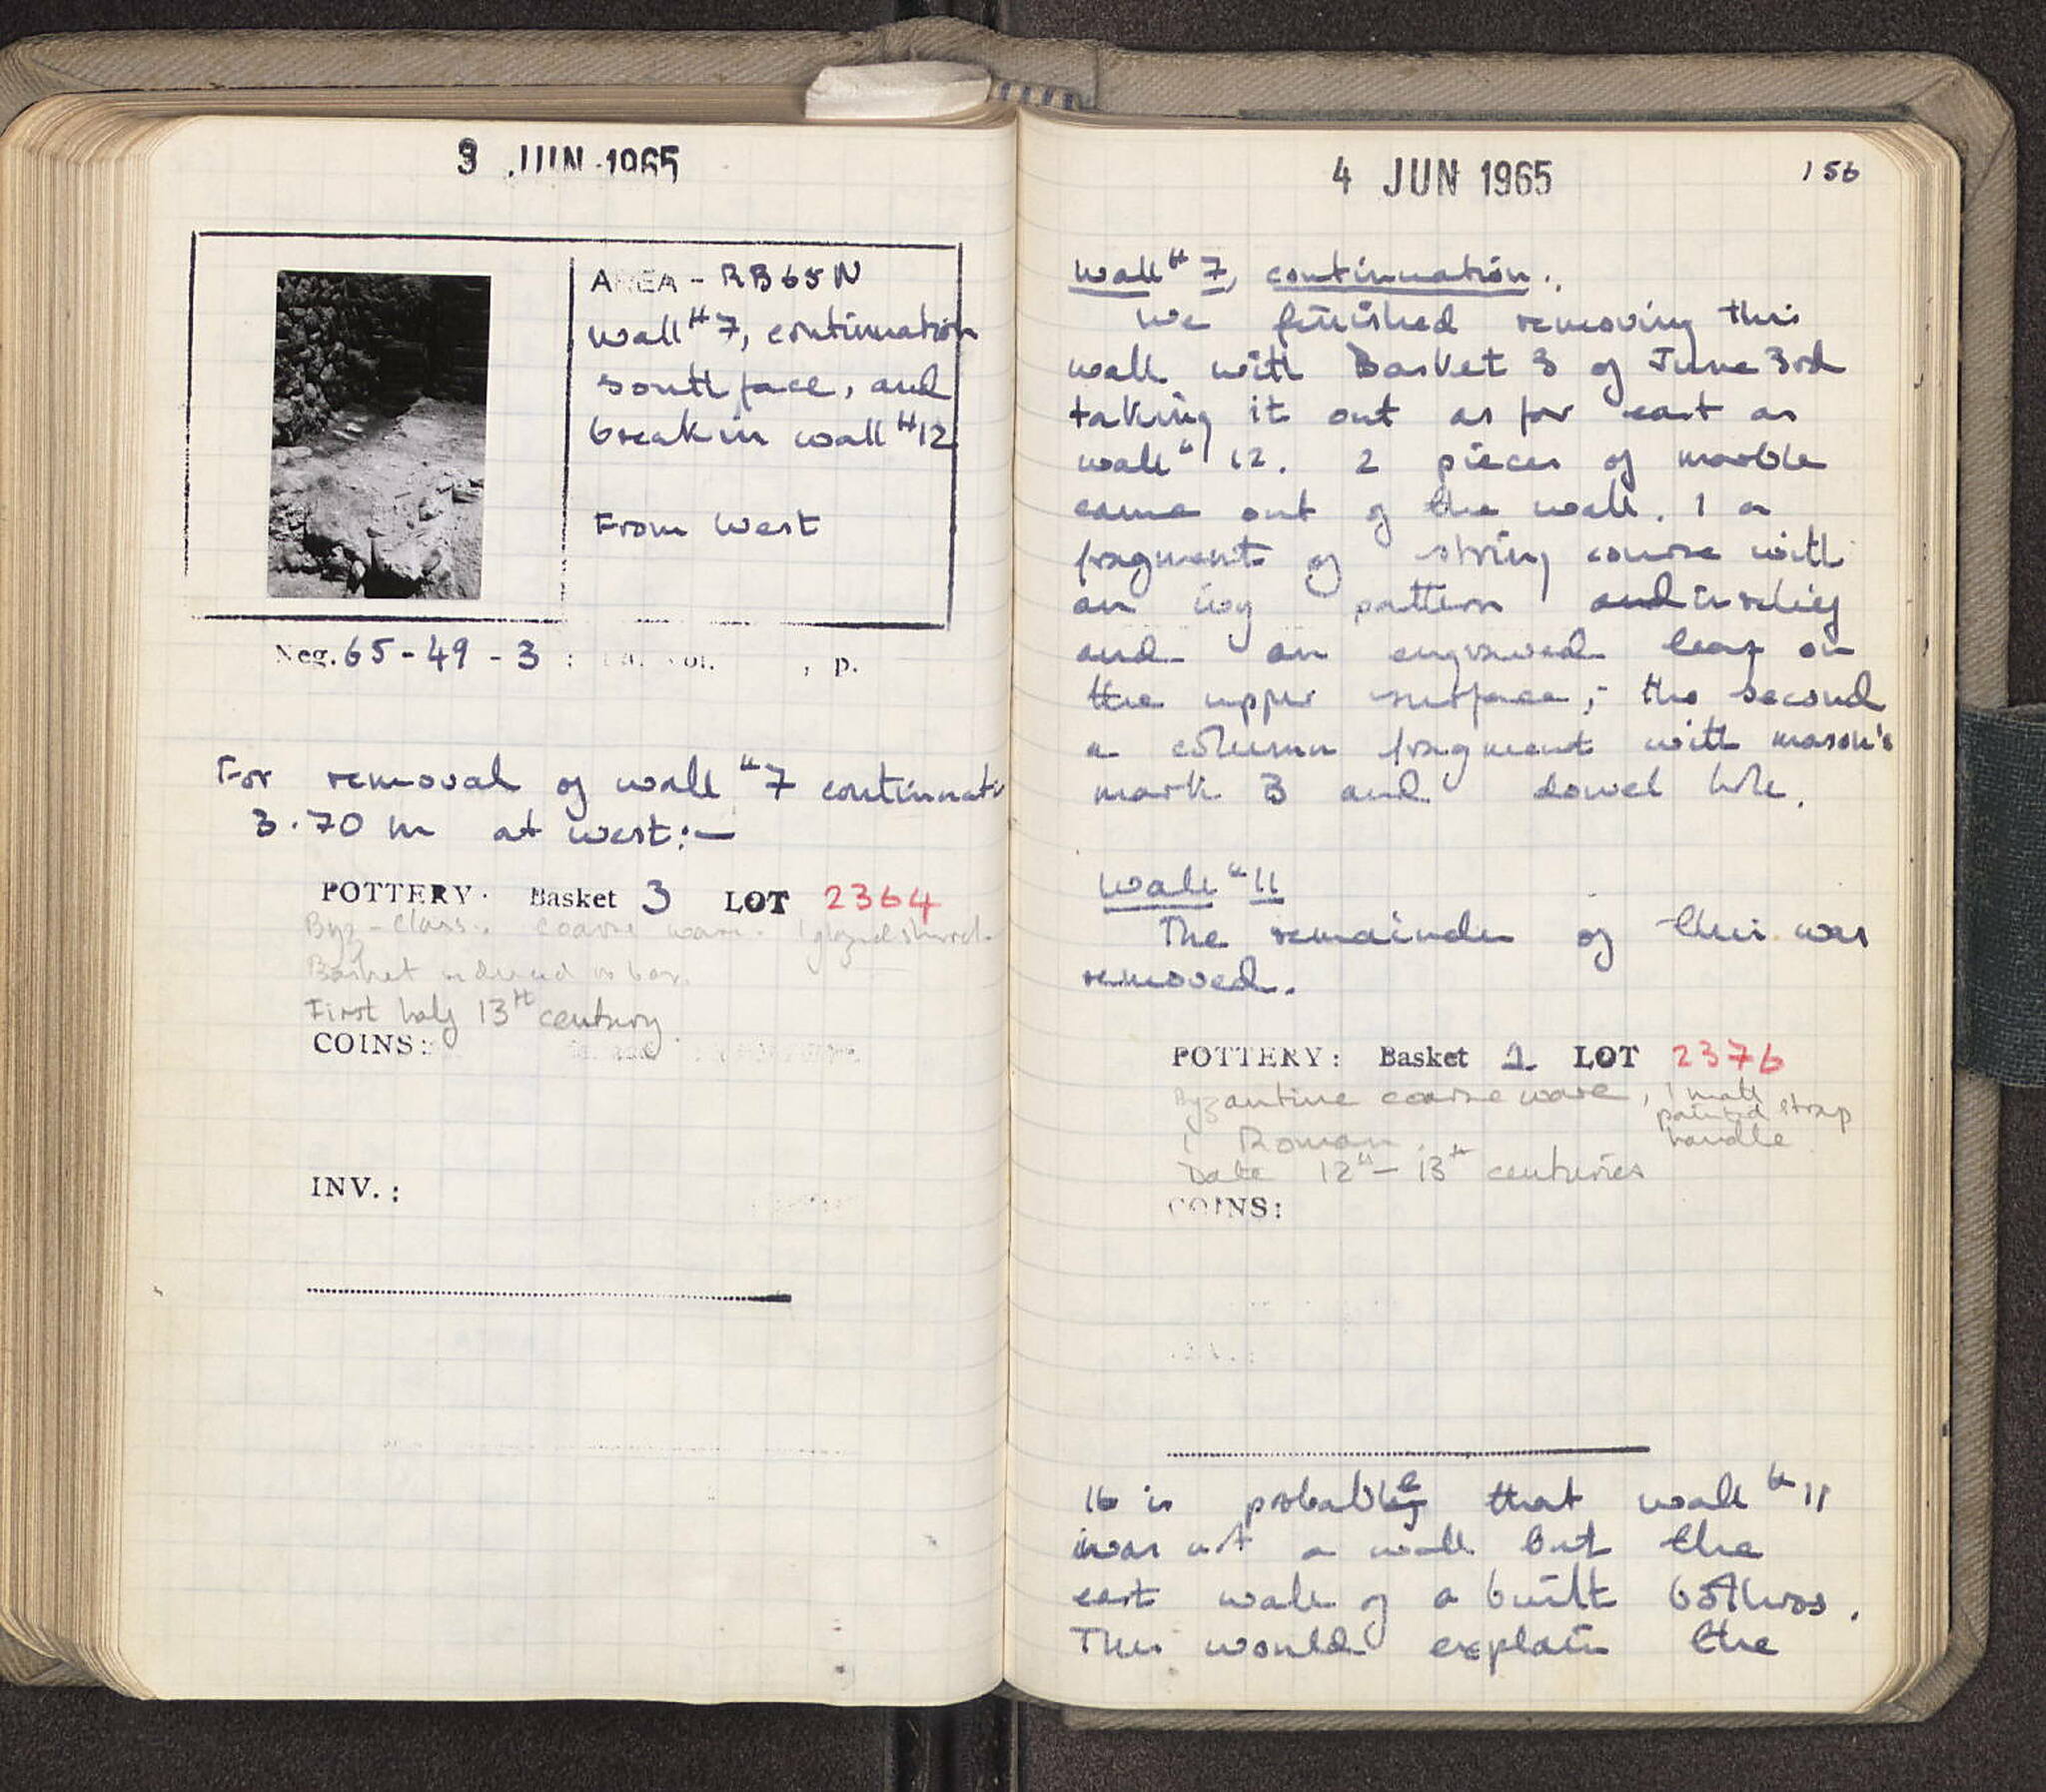 3 JUN 1965
AREA - RB65N
wall #7, continuation
south face, and
break in wall #12
From West
Neg. 65-49-3 : , p.
For removal of wall #7 continuati
3.70 m at west:—
POTTERY. Basket 3 LOT 2364
Byz - Class. coarse ware. 1 glazed sherd.
Basket reduced to box.
First half 13th century
COINS:
INV.:
4 JUN 1965
156
Wall #7, continuation.
We finished removing this
wall with Basket 3 of June 3rd
taking it out as far east as
wall #12. 2 pieces of marble
came out of the wall. 1 a
fragment of string course with
an ivy pattern and in relief
and an engraved leaf on
the upper surface; the second
a column fragment with mason's
mark B and dowel hole.
Wall #11
The remainder of this was
removed.
POTTERY: Basket 1 LOT 2376
Byzantine coarse ware, 1 matt
painted strap
handle
1 Roman.
Date 12th - 13th centuries
COINS:
It is probable that wall #11
was not a wall but the
east wall of a built bothros.
This would explain the